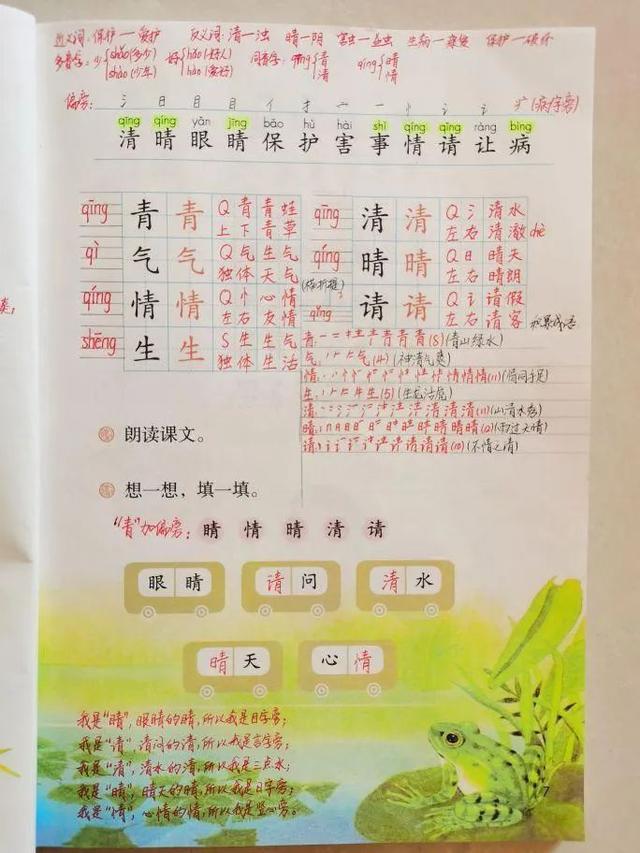 近义词:保护—爱护 反义词:清—浊 晴—阴 害虫—益虫 生病—康复 保护—破坏
多音字:少{shǎo(多少) shào(少年) 好{hǎo(好人) hào(爱好) 同音字:qīng{青 清 qíng{晴 情
偏旁: 氵 日 目 目 亻 扌 宀 一 忄 讠 讠 疒(病字旁)
qīng qíng yǎn jīng bǎo hù hài shì qíng qǐng ràng bìng
清 晴 眼 睛 保 护 害 事 情 请 让 病
qīng 青 青 Q 青 青蛙 qīng 清 清 Q 氵 清水
上下 青草 左右 清澈 chè
qì 气 气 Q 气 生气 qíng 晴 晴 Q 日 晴天
独体 天气 (横折提) 左右 晴朗
qíng 情 情 Q 忄 心情 qǐng 请 请 Q 讠 请假
左右 友情 左右 请客 积累成语
shēng 生 生 S 生 生气 青: (8)(青山绿水)
独体 生活 气: (4)(神清气爽)
情: (11)(情同手足)
生: (5)(生龙活虎)
清: (11)(山清水秀)
晴: (12)(雨过天晴)
请: (10)(不情之请)
朗读课文。
想一想,填一填。
“青”加偏旁: 睛 情 晴 清 请
眼睛 请问 清水
晴天 心情
我是“睛”,眼睛的睛,所以我是目字旁;
我是“请”,请问的请,所以我是言字旁;
我是“清”,清水的清,所以我是三点水;
我是“晴”,晴天的晴,所以我是日字旁;
我是“情”,心情的情,所以我是竖心旁。
7